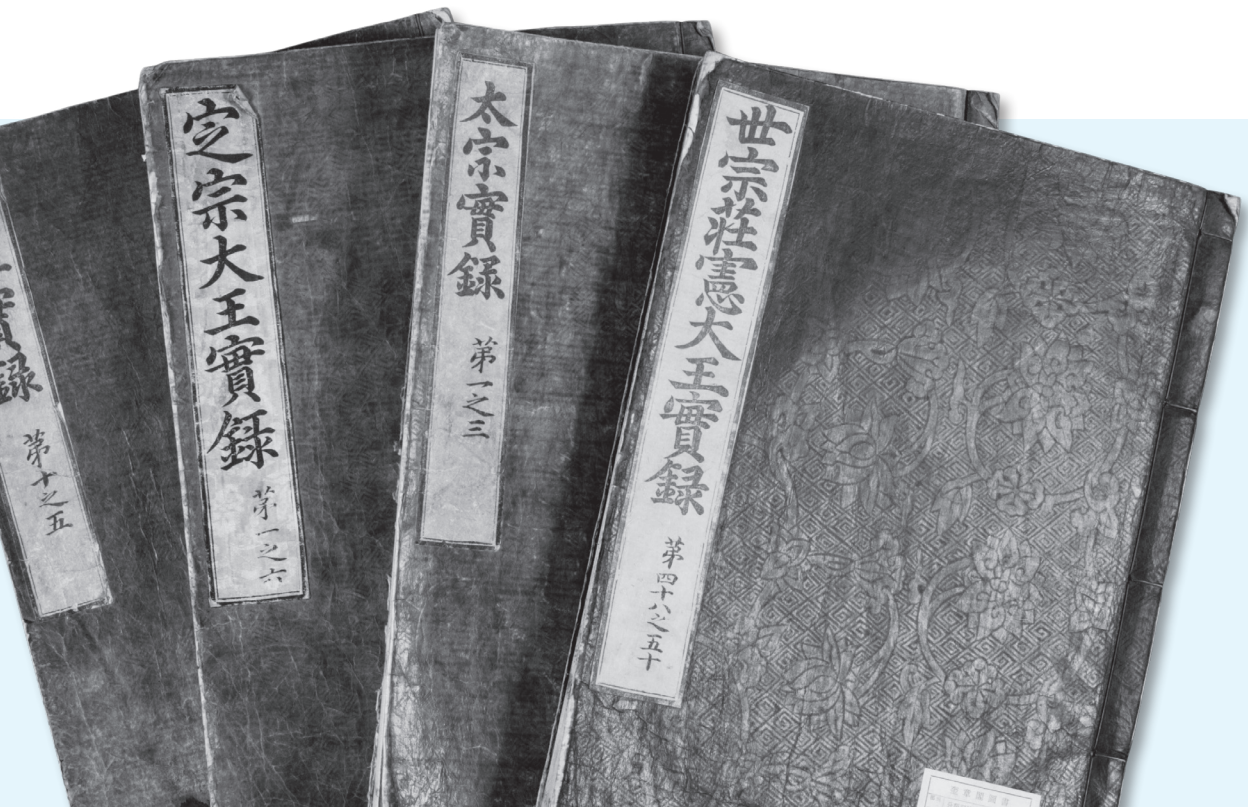 實錄
第十之五
定宗大王實錄
第一之六
太宗實錄
第一之三
世宗莊憲大王實錄
第四十八之五十